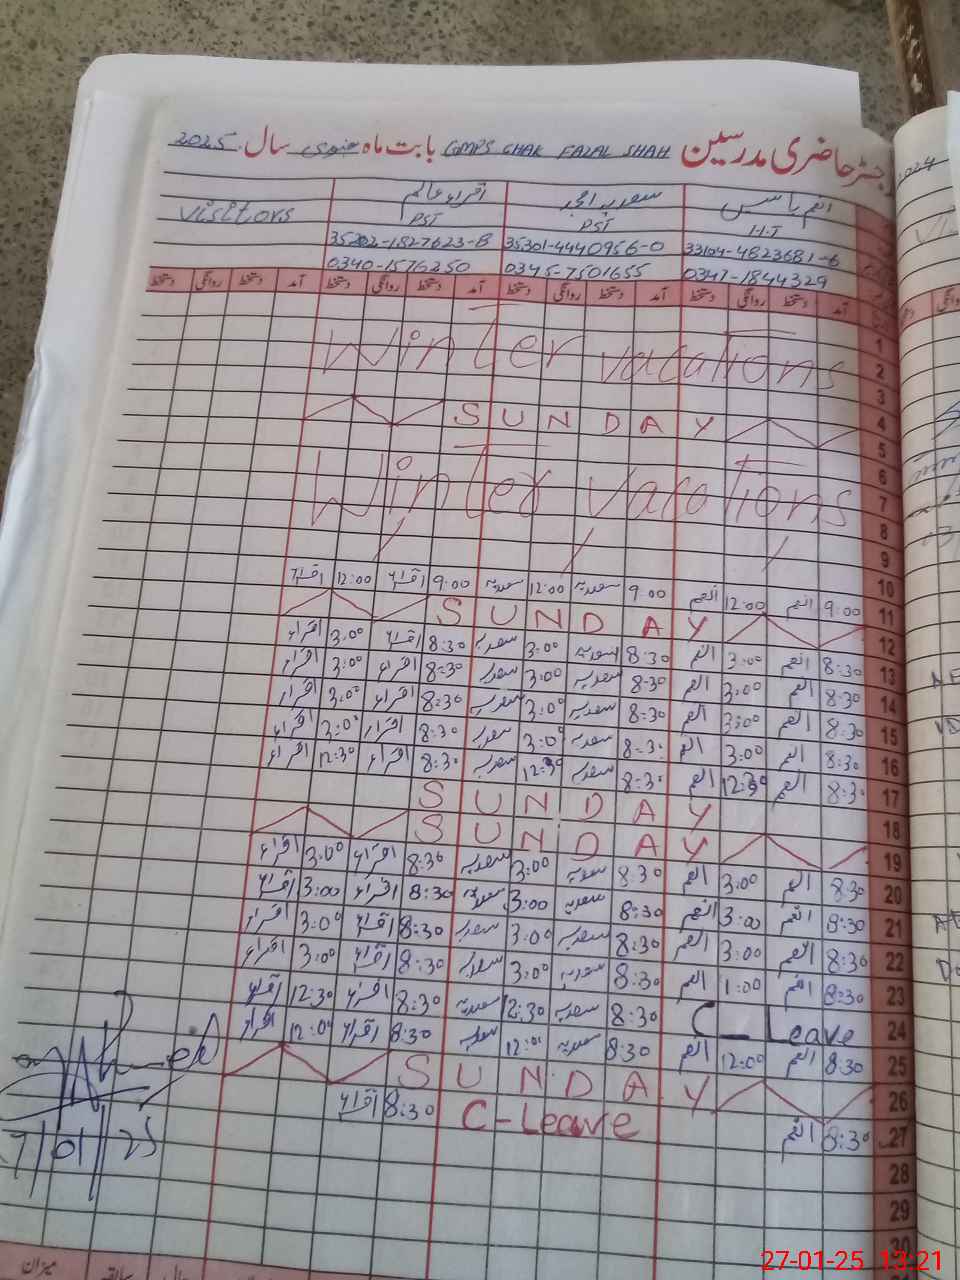 رجسٹر حاضری مدرسین GMPS CHAK FAZAL SHAH بابت ماہ جنوری سال 2025
انعم یاسین سعدیہ امجد اقراء عالم
H.T PST PST Visitors
33104-4823681-6 35301-4440956-0 35202-1827623-8
0347-1844329 0345-7501655 0340-1576250
آمد دستخط روانگی دستخط آمد دستخط روانگی دستخط آمد دستخط روانگی دستخط آمد دستخط روانگی دستخط
1
Winter vacations
2
3
4
SUNDAY
5
6
Winter vacations
7
8
9
10 9:00 انعم 12:00 انعم 9:00 سعدیہ 12:00 سعدیہ 9:00 اقراء 12:00 اقراء
11
SUNDAY
12
13 8:30 انعم 3:00 انعم 8:30 سعدیہ 3:00 سعدیہ 8:30 اقراء 3:00 اقراء
14 8:30 انعم 3:00 انعم 8:30 سعدیہ 3:00 سعدیہ 8:30 اقراء 3:00 اقراء
15 8:30 انعم 3:00 انعم 8:30 سعدیہ 3:00 سعدیہ 8:30 اقراء 3:00 اقراء
16 8:30 انعم 3:00 انعم 8:30 سعدیہ 3:00 سعدیہ 8:30 اقراء 3:00 اقراء
17 8:30 انعم 12:30 انعم 8:30 سعدیہ 12:30 سعدیہ 8:30 اقراء 12:30 اقراء
18 SUNDAY
19 SUNDAY
20 8:30 انعم 3:00 انعم 8:30 سعدیہ 3:00 سعدیہ 8:30 اقراء 3:00 اقراء
21 8:30 انعم 3:00 انعم 8:30 سعدیہ 3:00 سعدیہ 8:30 اقراء 3:00 اقراء
22 8:30 انعم 3:00 انعم 8:30 سعدیہ 3:00 سعدیہ 8:30 اقراء 3:00 اقراء
23 8:30 انعم 1:00 انعم 8:30 سعدیہ 3:00 سعدیہ 8:30 اقراء 3:00 اقراء
24 C-Leave 8:30 سعدیہ 12:30 سعدیہ 8:30 اقراء 12:30 اقراء
25 8:30 انعم 12:00 انعم 8:30 سعدیہ 12:00 سعدیہ 8:30 اقراء 12:00 اقراء
26 SUNDAY
27 8:30 انعم C-Leave 8:30 اقراء
28
29
30
/01/25
میزان
سابقہ
2024
27-01-25 13:21